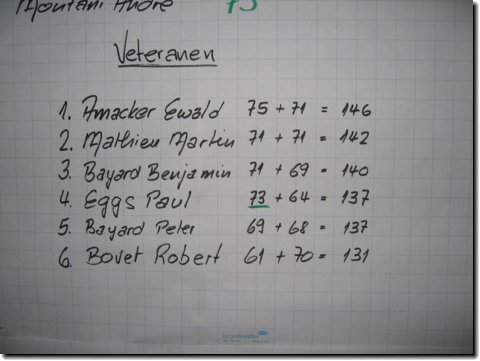 Montani André 75
Veteranen
1. Amacker Ewald 75 + 71 = 146
2. Mathieu Martin 71 + 71 = 142
3. Bayard Benjamin 71 + 69 = 140
4. Eggs Paul 73 + 64 = 137
5. Bayard Peter 69 + 68 = 137
6. Bovet Robert 61 + 70 = 131
Legamaster